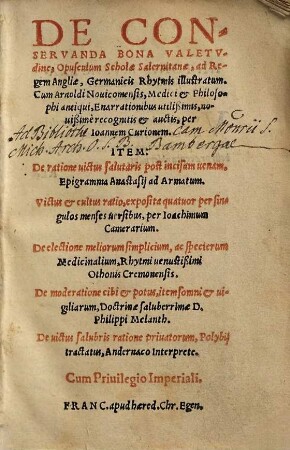 DE CON-
SERVANDA BONA VALETV
dine, Opusculum Scholæ Salernitanæ, ad Re-
gem Angliæ, Germanicis Rhytmis illustratum.
Cum Arnoldi Nouicomensis, Medici & Philoso-
phi antiqui, Enarrationibus utilißimis, no-
uißimè recognitis & auctis, per
Ioannem Curionem.
Ad Bibliothe cam Monrij S.
Mich. Arch. O. S. B. Bambergae
ITEM:
De ratione victus salutaris post incisam uenam,
Epigramma Anastasij ad Armatum.
Victus & cultus ratio, exposita quatuor per sin
gulos menses uersibus, per Ioachimum
Camerarium.
De electione meliorum simplicium, ac specierum
Medicinalium, Rhytmi uenustißimi
Othonis Cremonensis.
De moderatione cibi & potus, item somni & ui-
giliarum, Doctrinæ saluberrimæ D.
Philippi Melanth.
De victus salubris ratione priuatorum, Polybij
tractatus, Andernaco Interprete.
Cum Priuilegio Imperiali.
FRANC. apud hæred. Chr. Egen.